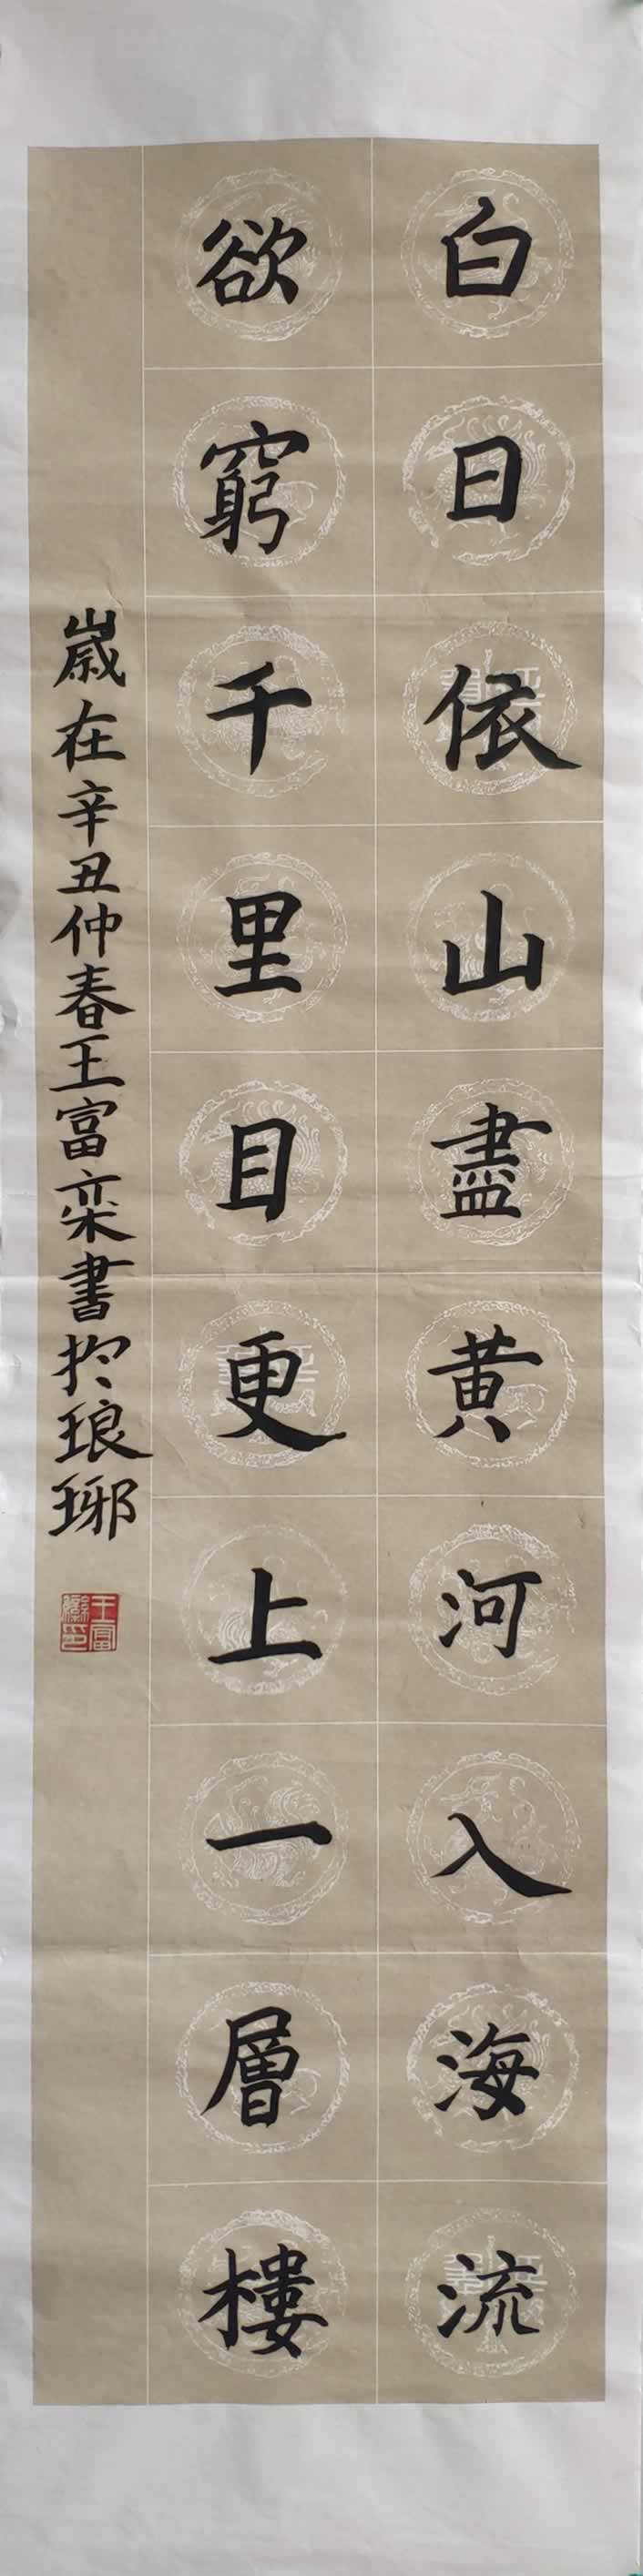 白日依山盡黄河入海流
欲窮千里目更上一層樓
歲在辛丑仲春王富栾書於琅琊
王富欒印